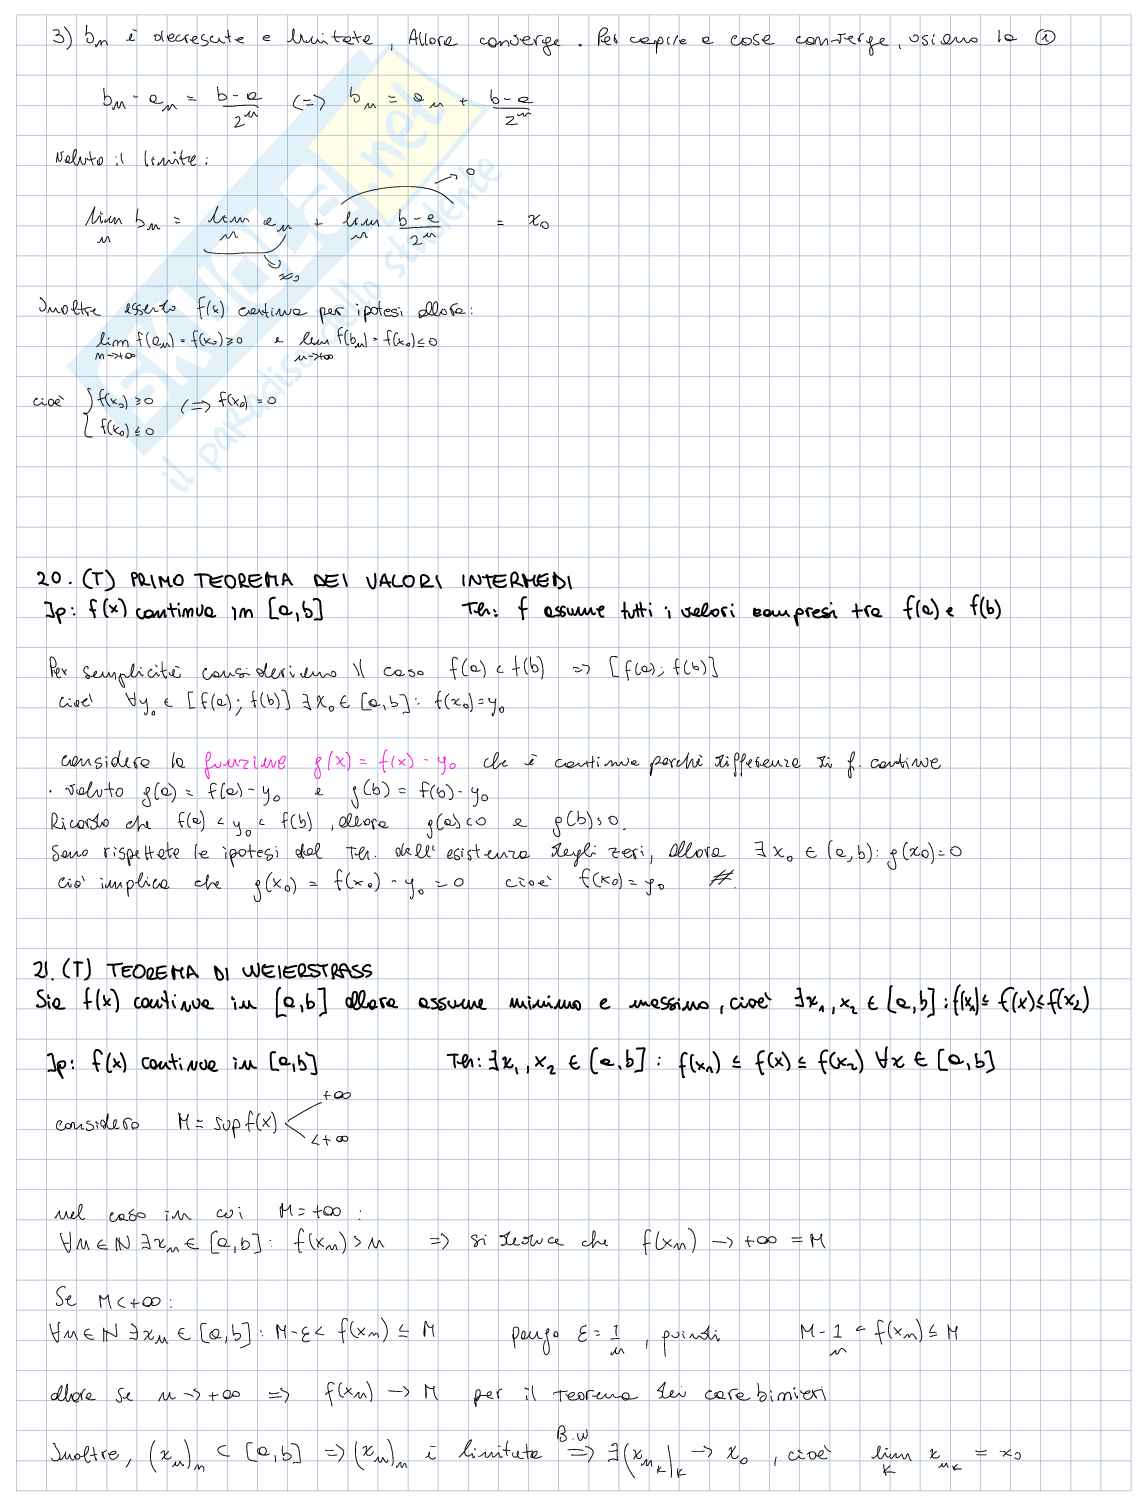 3) bₙ è decrescente e limitata, Allora converge. Per capire a cosa converge, usiamo la ①
bₙ - aₙ = (b-a)/2ⁿ <=> bₙ = aₙ + (b-a)/2ⁿ
Valuto il limite:
→ 0
lim bₙ = lim aₙ + lim (b-a)/2ⁿ = x₀
n n n
x₀
Inoltre essendo f(x) continua per ipotesi allora:
lim f(aₙ) = f(x₀) ≥ 0 e lim f(bₙ) = f(x₀) ≤ 0
n→+∞ n→+∞
cioè { f(x₀) ≥ 0 <=> f(x₀) = 0
f(x₀) ≤ 0
SKUOLA.net
il paradiso dello studente
20. (T) PRIMO TEOREMA DEI VALORI INTERMEDI
Ip: f(x) continua in [a,b] Th: f assume tutti i valori compresi tra f(a) e f(b)
Per semplicità consideriamo il caso f(a) < f(b) => [f(a); f(b)]
cioè ∀y₀ ∈ [f(a); f(b)] ∃x₀ ∈ [a,b]: f(x₀) = y₀
considero la funzione g(x) = f(x) - y₀ che è continua perché differenza di f. continue
· valuto g(a) = f(a) - y₀ e g(b) = f(b) - y₀
Ricordo che f(a) < y₀ < f(b), allora g(a) < 0 e g(b) > 0.
Sono rispettate le ipotesi del Th. dell'esistenza degli zeri, allora ∃x₀ ∈ (a,b): g(x₀) = 0
ciò implica che g(x₀) = f(x₀) - y₀ = 0 cioè f(x₀) = y₀ #.
21. (T) TEOREMA DI WEIERSTRASS
Sia f(x) continua in [a,b] allora assume minimo e massimo, cioè ∃x₁, x₂ ∈ [a,b]: f(x₁) ≤ f(x) ≤ f(x₂)
Ip: f(x) continua in [a,b] Th: ∃x₁, x₂ ∈ [a,b]: f(x₁) ≤ f(x) ≤ f(x₂) ∀x ∈ [a,b]
+∞
considero M = sup f(x)
< +∞
nel caso in cui M = +∞:
∀n ∈ ℕ ∃xₙ ∈ [a,b]: f(xₙ) > n => si deduce che f(xₙ) → +∞ = M
Se M < +∞:
∀n ∈ ℕ ∃xₙ ∈ [a,b]: M-ε < f(xₙ) ≤ M pongo ε = 1/n, quindi M - 1/n < f(xₙ) ≤ M
allora se n → +∞ => f(xₙ) → M per il teorema dei carabinieri
Inoltre, (xₙ)ₙ ⊂ [a,b] => (xₙ)ₙ è limitata B.W => ∃(xₙₖ)ₖ → x₀, cioè lim xₙₖ = x₀
k